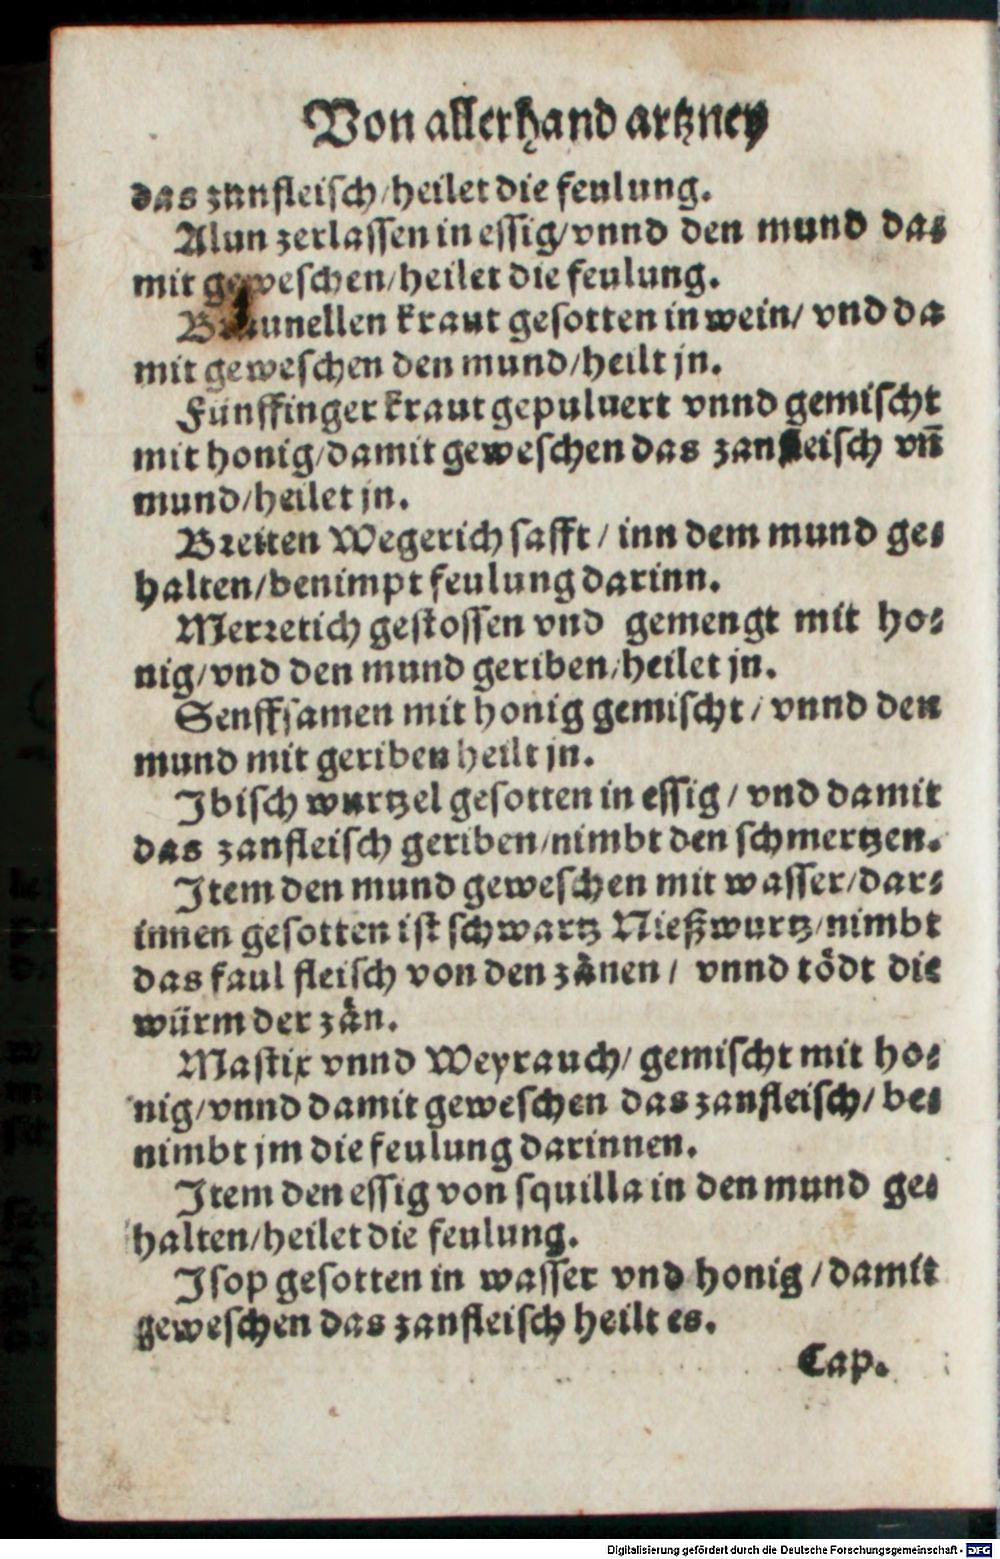 Von allerhand artzney
das zanfleisch/heilet die feulung.
Alun zerlassen in essig/vnnd den mund da⸗
mit geweschen/heilet die feulung.
Braunellen kraut gesotten in wein/ vnd da
mit geweschen den mund/heilt jn.
Fünffinger kraut gepuluert vnnd gemischt
mit honig/damit geweschen das zanfleisch vñ
mund/heilet jn.
Breiten Wegerich safft / inn dem mund ge⸗
halten/benimpt feulung darinn.
Merretich gestossen vnd gemengt mit ho⸗
nig/vnd den mund geriben/heilet jn.
Senffsamen mit honig gemischt / vnnd den
mund mit geriben heilt jn.
Ibisch wurtzel gesotten in essig / vnd damit
das zanfleisch geriben/nimbt den schmertzen.
Item den mund geweschen mit wasser/dar⸗
innen gesotten ist schwartz Nießwurtz/nimbt
das faul fleisch von den zänen / vnnd tödt die
würm der zän.
Mastix vnnd Weyrauch/ gemischt mit ho⸗
nig/vnnd damit geweschen das zanfleisch/ be⸗
nimbt jm die feulung darinnen.
Item den essig von squilla in den mund ge⸗
halten/heilet die feulung.
Isop gesotten in wasser vnd honig /damit
geweschen das zanfleisch heilt es.
Cap.
Digitalisierung gefördert durch die Deutsche Forschungsgemeinschaft - DFG